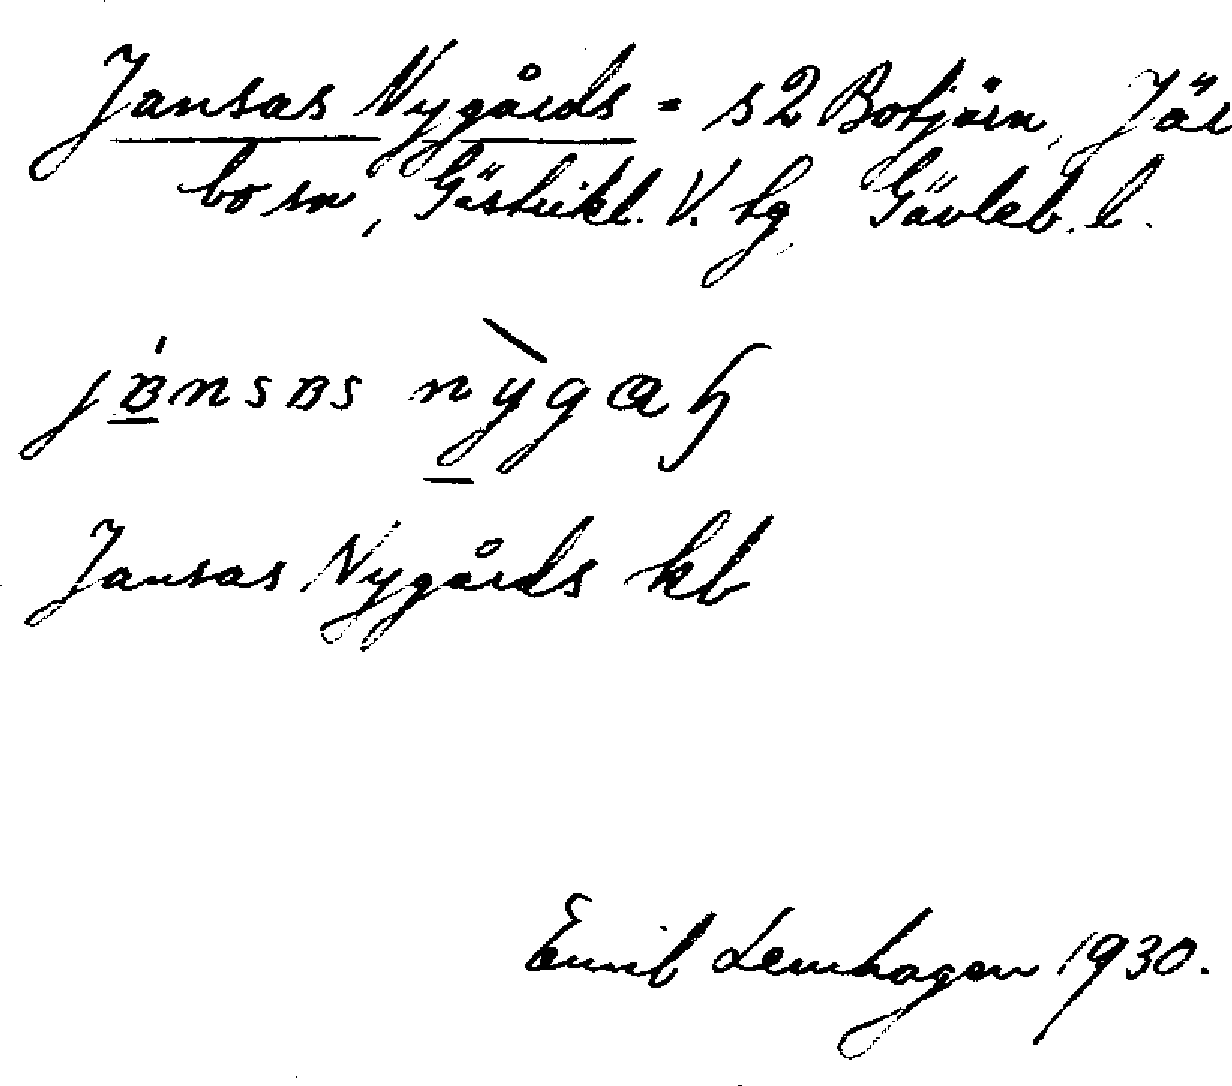 Jansas Nygårds = s2 Botjärn, Jär
bo sn, Gästrikl. V. tg, Gävleb. l.
Jansas Nygårds kb
Emil Lemhagen 1930.